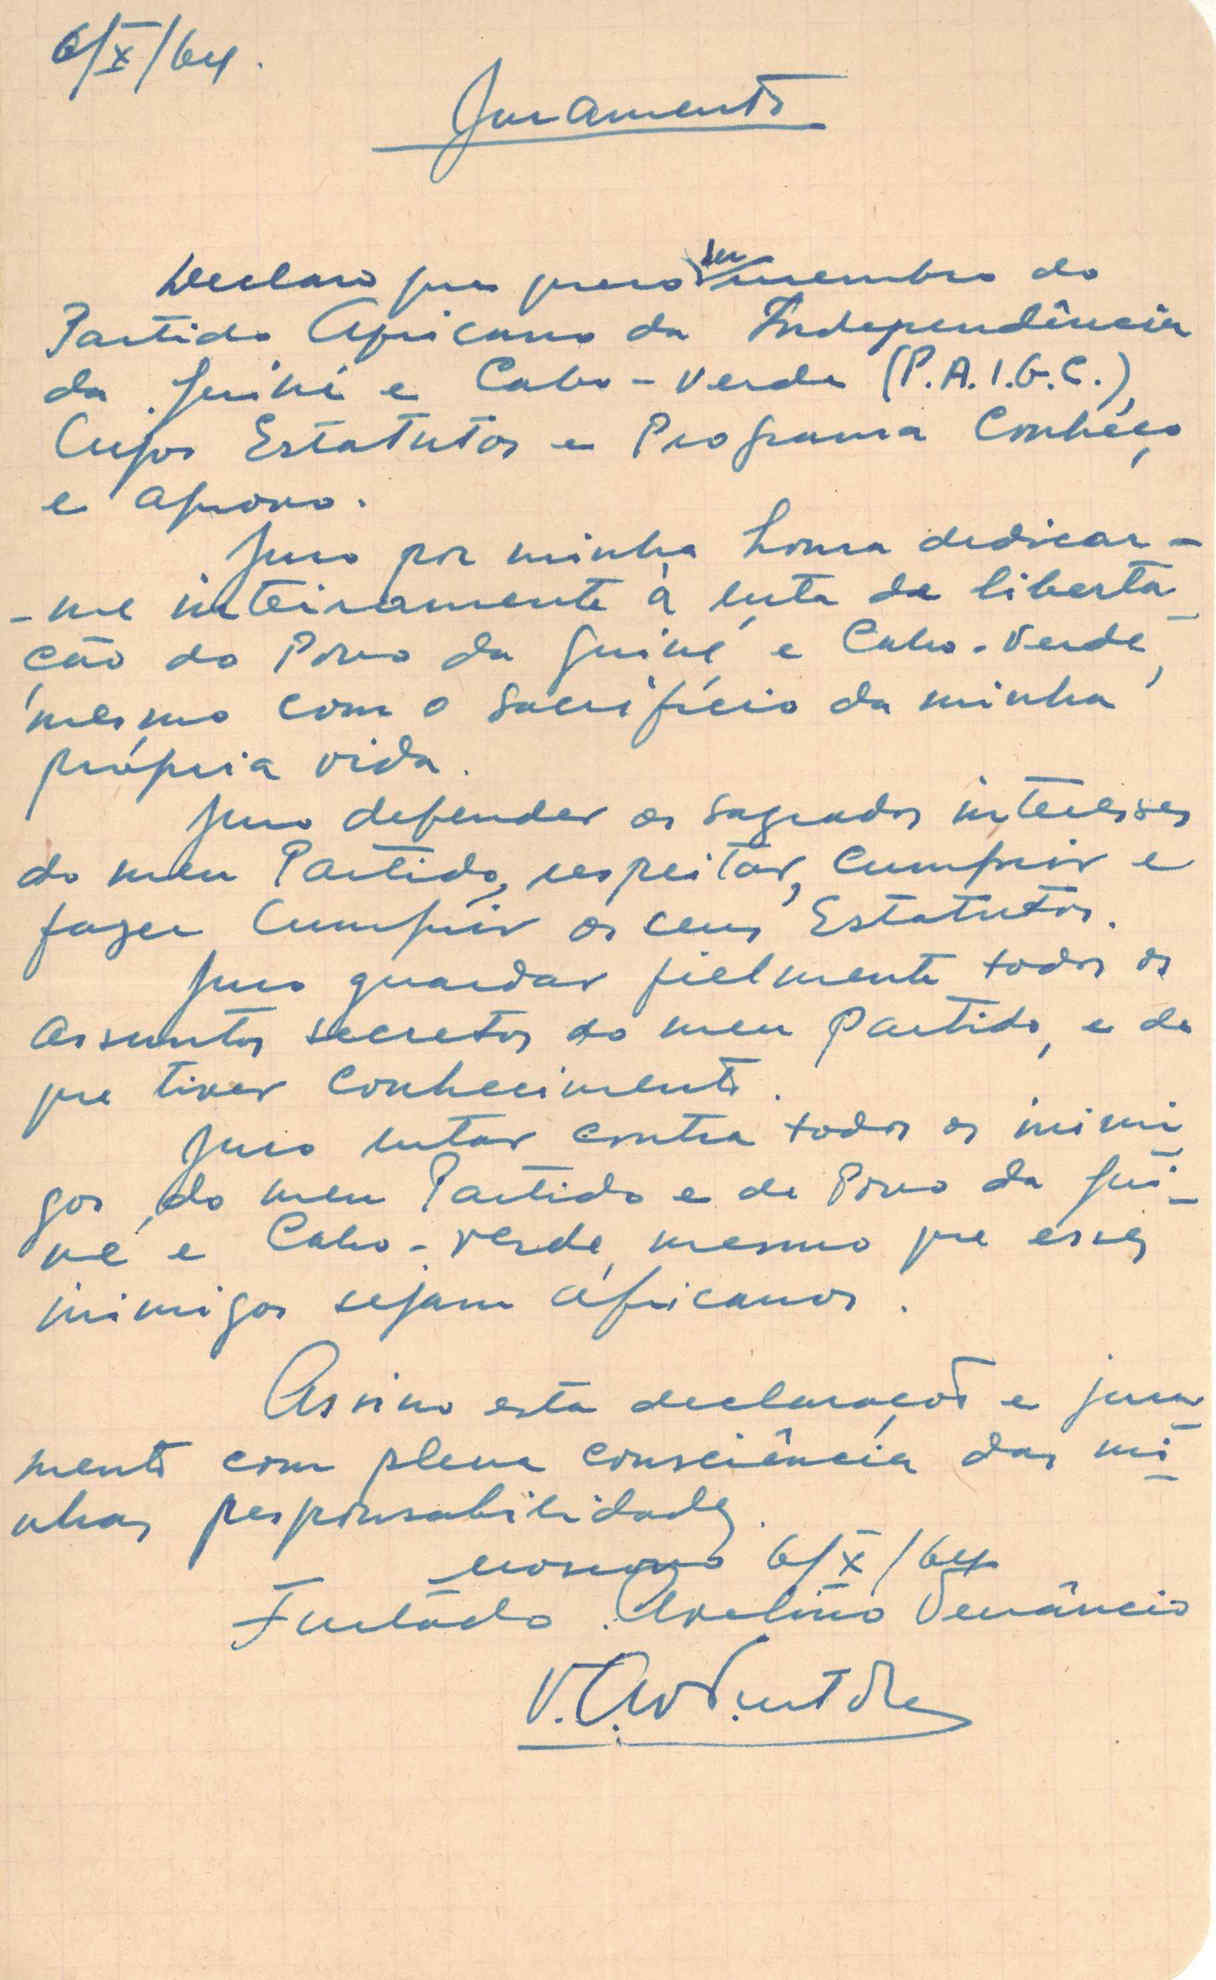 6/X/64.
Juramento
Declaro que quero ser membro do
Partido Africano da Independência
da Guiné e Cabo-Verde (P.A.I.G.C.),
Cujos Estatutos e Programa Conhéço
e aprovo.
Juro por minha honra dedicar-
-me inteiramente à luta de liberta-
ção do Povo da Guiné e Cabo-Verde,
mesmo com o sacrifício da minha
própria vida.
Juro defender os sagrados interesses
do meu Partido, respeitar, cumprir e
fazer cumprir os ceus Estatutos.
Juro guardar fielmente todos os
assuntos secretos do meu Partido, e de
que tiver conhecimento.
Juro lutar contra todos os inimi-
gos do meu Partido e do Povo da Gui-
né e Cabo-Verde, mesmo que esses
inimigos sejam africanos.
Assino esta declaração e jura-
mento com plena consciência das mi-
nhas responsabilidades.
6/X/64
Furtado Avelino Venâncio
V. Av. Furtado